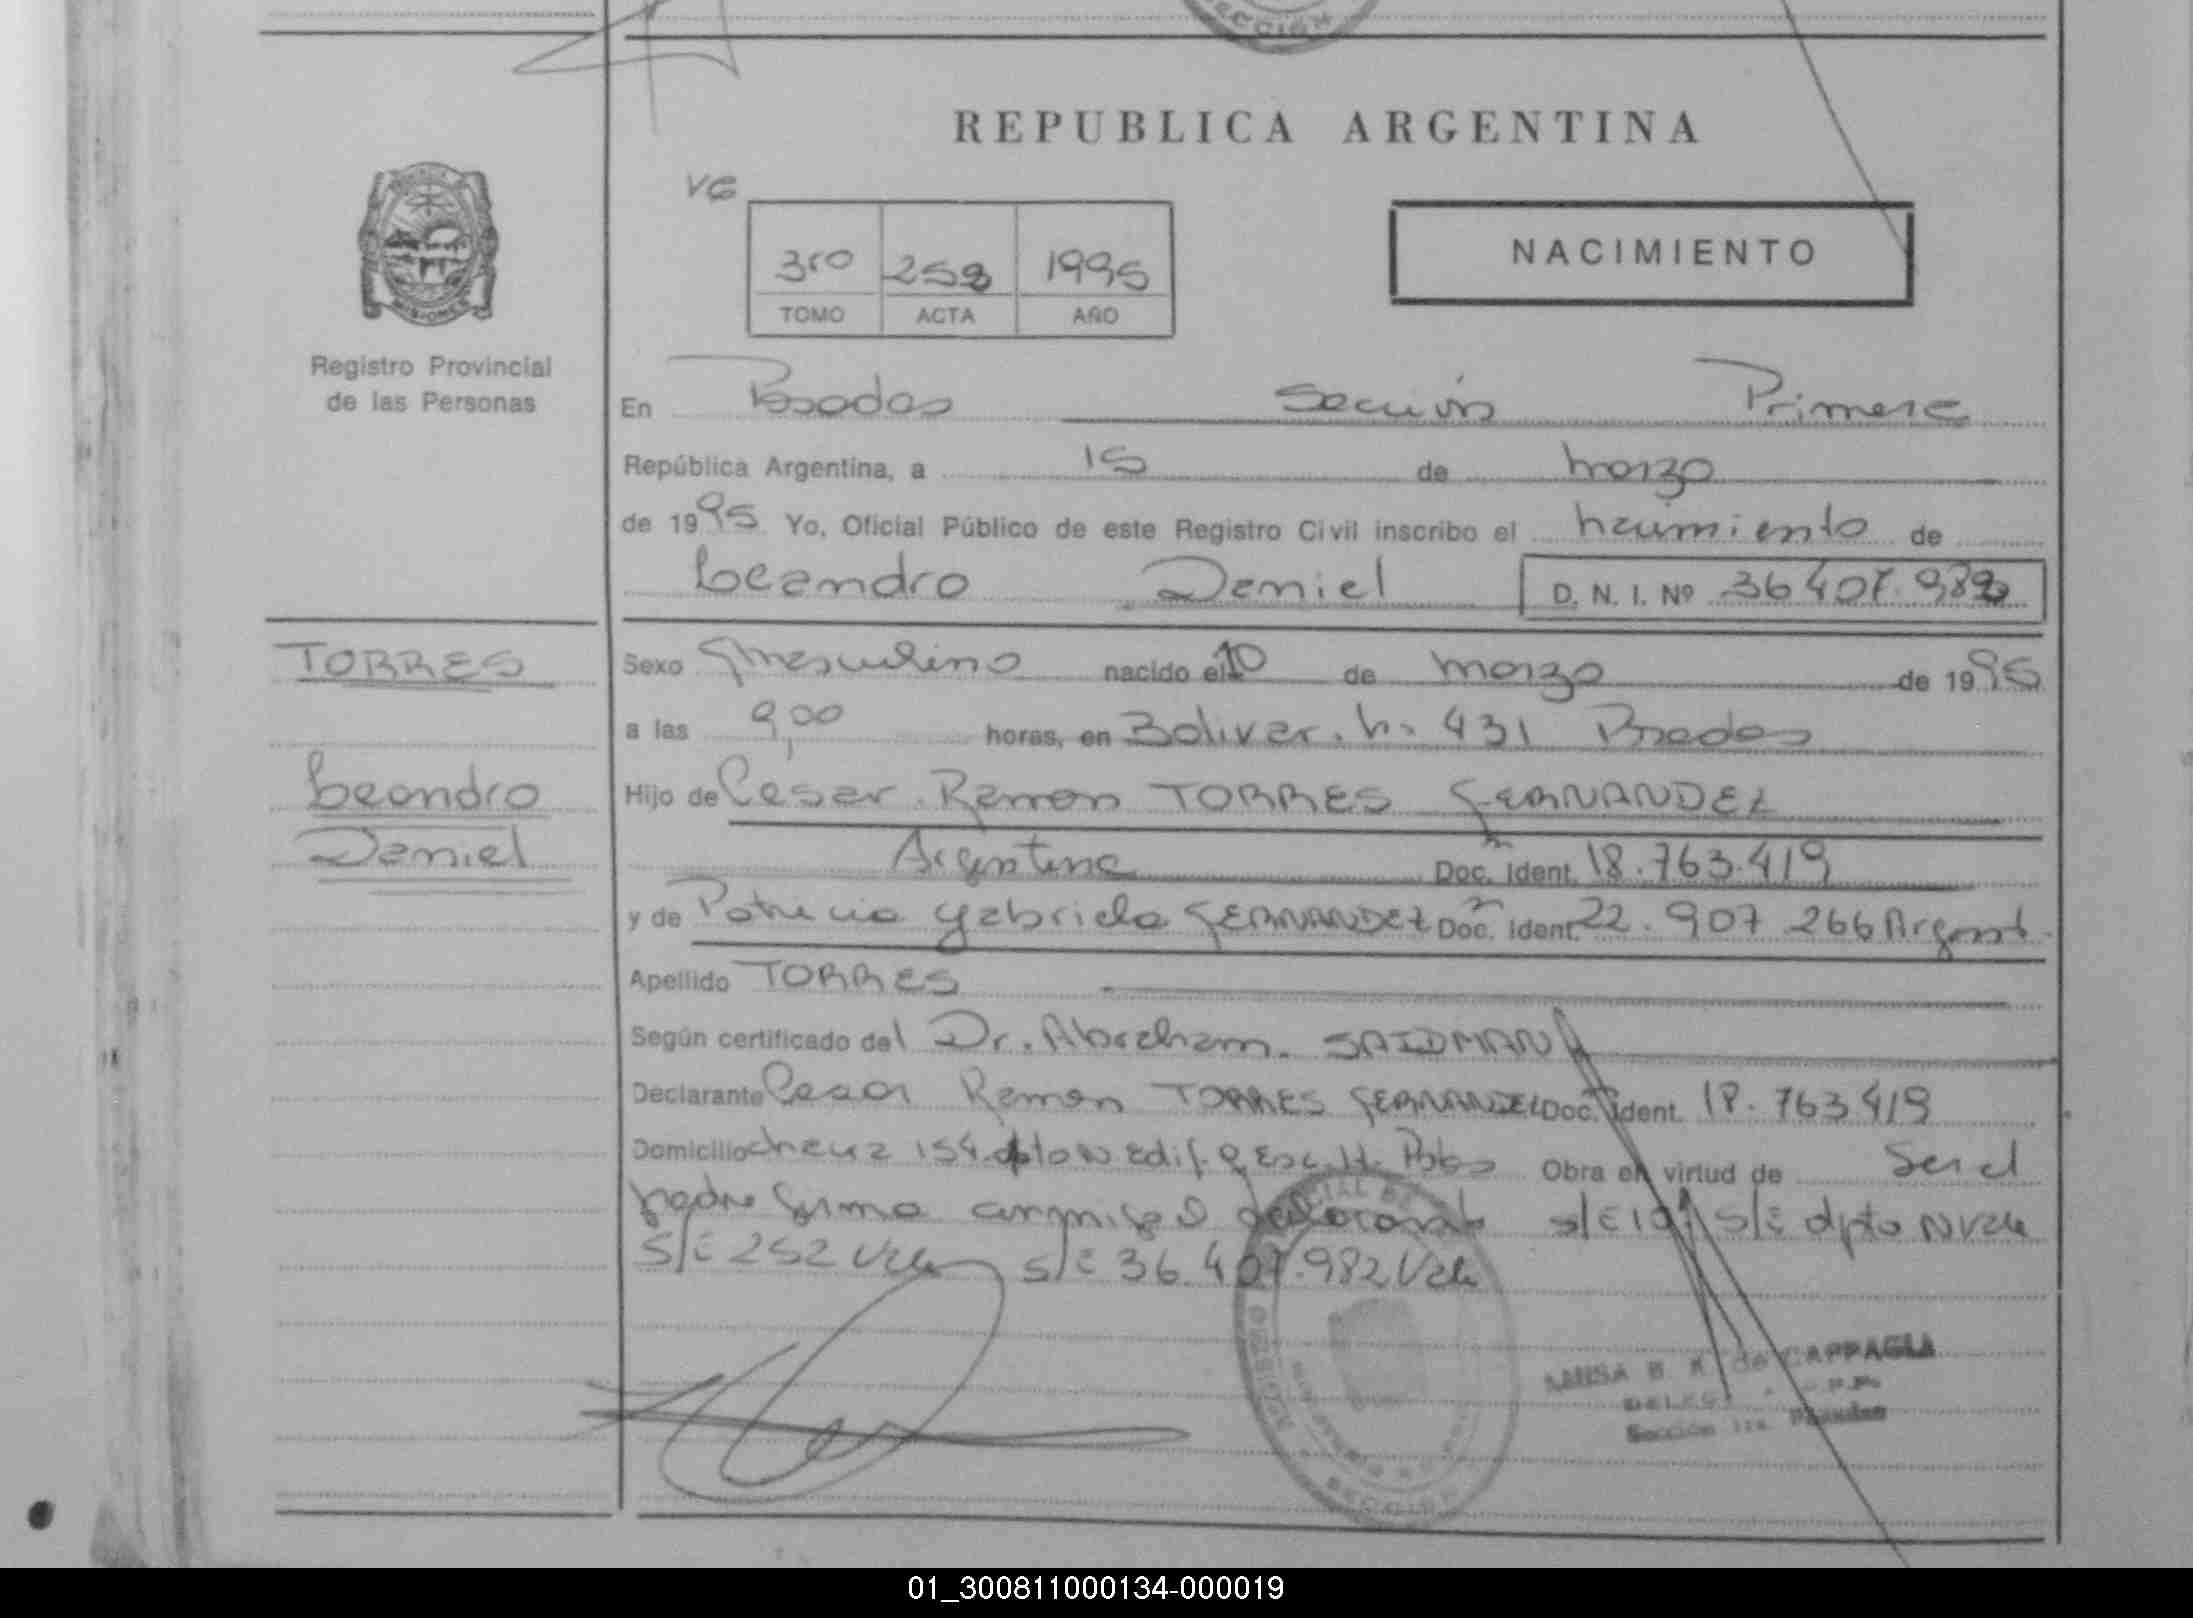 REPUBLICA ARGENTINA
VG
3ro 252 1995
TOMO ACTA AÑO
NACIMIENTO
MISIONES
Registro Provincial
de las Personas
En Posadas Sección Primera
República Argentina, a 15 de marzo
de 1995 Yo, Oficial Público de este Registro Civil inscribo el nacimiento de
Leandro Daniel D. N. I. Nº 36407.982
TORRES
Leandro
Daniel
Sexo masculino nacido el 10 de marzo de 1995
a las 9,00 horas, en Bolivar. n. 431 Posadas
Hijo de Cesar Ramon TORRES FERNANDEZ
Argentina Doc. Ident. 18.763.419
y de Patricia Gabriela FERNANDEZ Doc. Ident. 22.907 266 Argent.
Apellido TORRES
Según certificado del Dr. Abraham. SAIDMAN
Declarante Cesar Ramon TORRES FERNANDEZ Doc. Ident. 18.763419
Domicilio 154 dpto N edif. 9 Esc. H. Pdas Obra en virtud de Ser el
padre firma s/E 10 s/E dpto N Vale
S/E 252 Vale s/E 36.407.982 Vale
de CAPPAGLI
Sección 1ra. Posadas
01_300811000134-000019